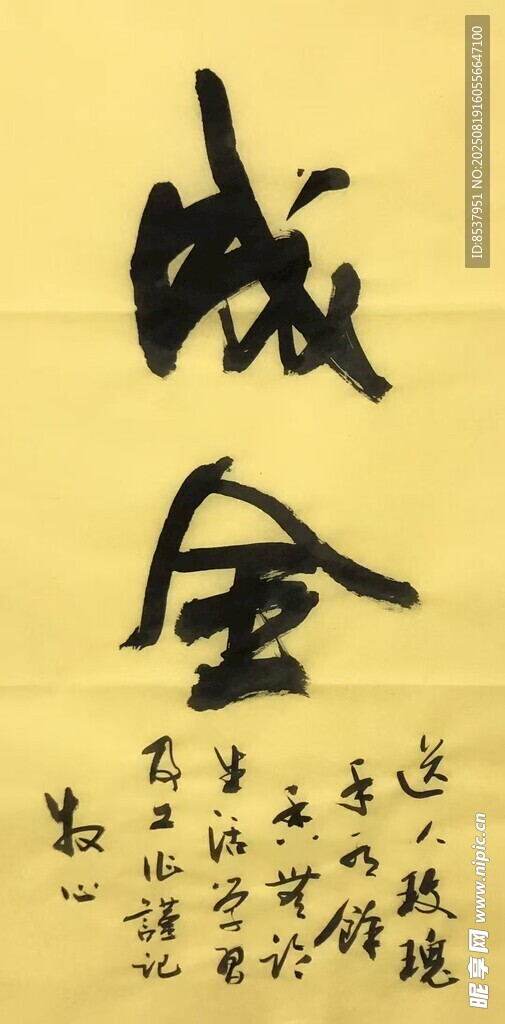 成
金
送人玫瑰
手有餘
香無論
生活學習
及工作謹記
牧心
ID:8537951 NO:20250819160556647100
昵享网 www.nipic.cn